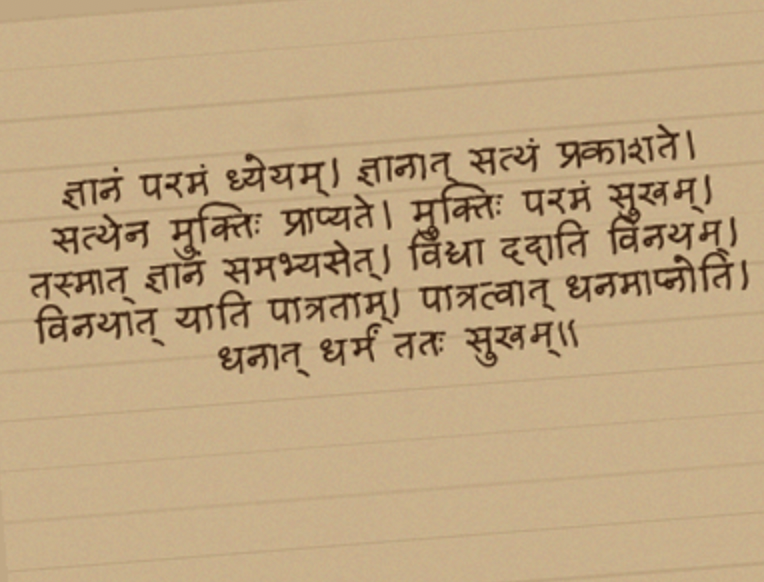 ज्ञानं परमं ध्येयम्। ज्ञानात् सत्यं प्रकाशते।
सत्येन मुक्तिः प्राप्यते। मुक्तिः परमं सुखम्।
तस्मात् ज्ञानं समभ्यसेत्। विद्या ददाति विनयम्।
विनयात् याति पात्रताम्। पात्रत्वात् धनमाप्नोति।
धनात् धर्मं ततः सुखम्॥